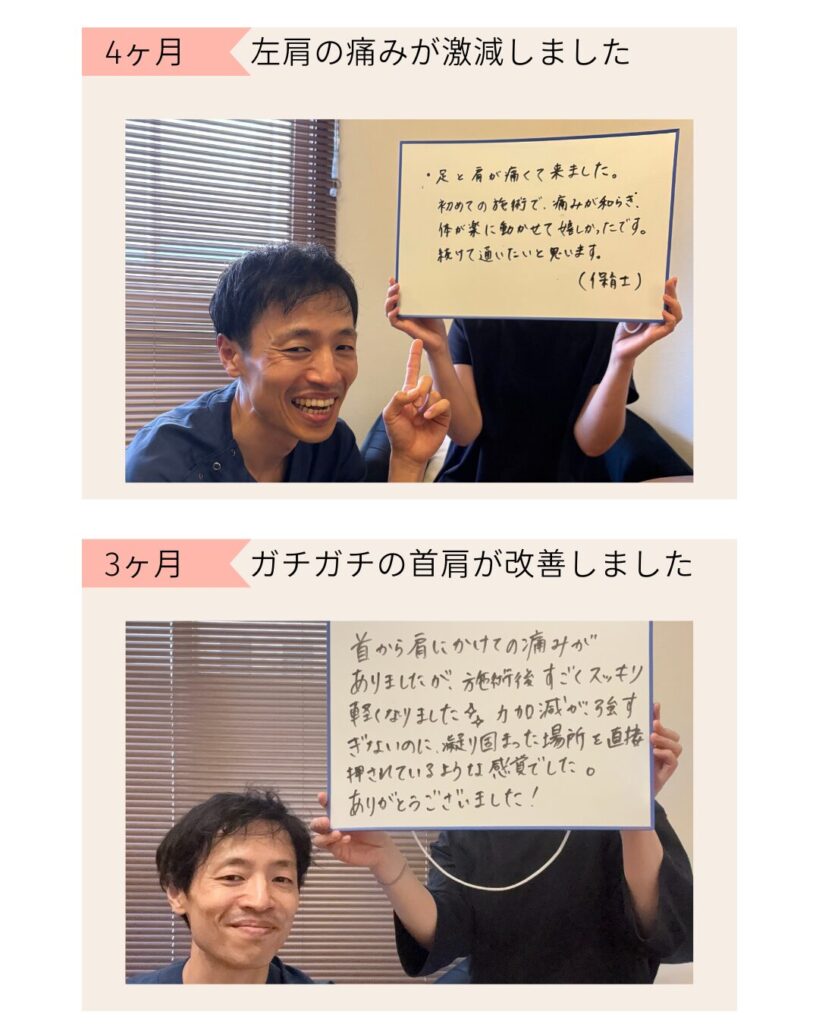 4ヶ月
左肩の痛みが激減しました
・足と肩が痛くて来ました。
初めての施術で、痛みが和らぎ、
体が楽に動かせて嬉しかったです。
続けて通いたいと思います。
(保育士)
3ヶ月
ガチガチの首肩が改善しました
首から肩にかけての痛みが
ありましたが、施術後すごくスッキリ
軽くなりました✨ 力加減が強す
ぎないのに、凝り固まった場所を直接
押されているような感覚でした。
ありがとうございました!